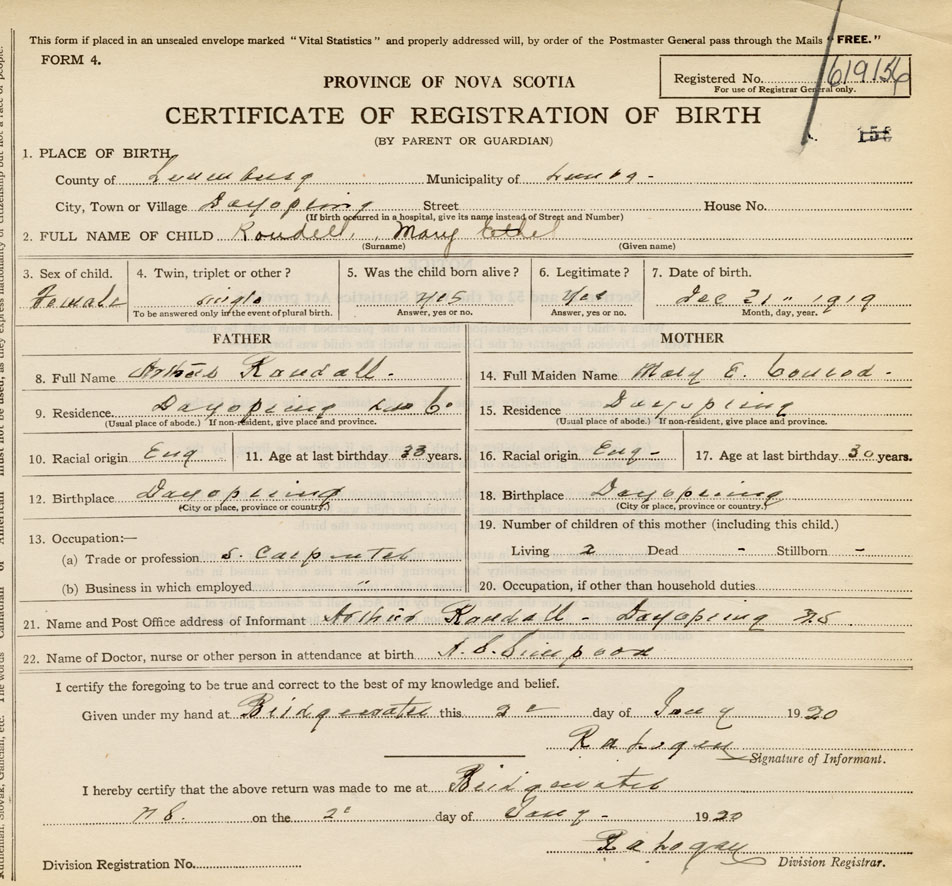 This form if placed in an unsealed envelope marked "Vital Statistics" and properly addressed will, by order of the Postmaster General pass through the Mails "FREE."
FORM 4.
PROVINCE OF NOVA SCOTIA
Registered No. 619156
For use of Registrar General only.
CERTIFICATE OF REGISTRATION OF BIRTH
(BY PARENT OR GUARDIAN)
1. PLACE OF BIRTH
County of Lunenburg Municipality of
City, Town or Village Dayspring Street House No.
(If birth occurred in a hospital, give its name instead of Street and Number)
2. FULL NAME OF CHILD Randell, Mary Ethel
(Surname) (Given name)
3. Sex of child. 4. Twin, triplet or other? 5. Was the child born alive? 6. Legitimate? 7. Date of birth.
Female single yes Yes Dec 1919
To be answered only in the event of plural birth. Answer, yes or no. Answer, yes or no. Month, day, year.
FATHER MOTHER
8. Full Name Randall 14. Full Maiden Name Mary E. Conrod
9. Residence. Dayspring Lun Co 15. Residence Dayspring
(Usual place of abode.) If non-resident, give place and province. (Usual place of abode.) If non-resident, give place and province.
10. Racial origin Eng 11. Age at last birthday 33 years. 16. Racial origin Eng 17. Age at last birthday 30 years.
12. Birthplace Dayspring 18. Birthplace Dayspring
(City or place, province or country.) (City or place, province or country.)
19. Number of children of this mother (including this child.)
13. Occupation:—
(a) Trade or profession S. Carpenter Living 2 Dead - Stillborn -
(b) Business in which employed " 20. Occupation, if other than household duties
21. Name and Post Office address of Informant Arthur Randall - Dayspring NS
22. Name of Doctor, nurse or other person in attendance at birth
I certify the foregoing to be true and correct to the best of my knowledge and belief.
Given under my hand at Bridgewater this 2 day of Jany 1920
Signature of Informant.
I hereby certify that the above return was made to me at Bridgewater
N S. on the 2 day of Jany - 1920
Division Registration No. Division Registrar.